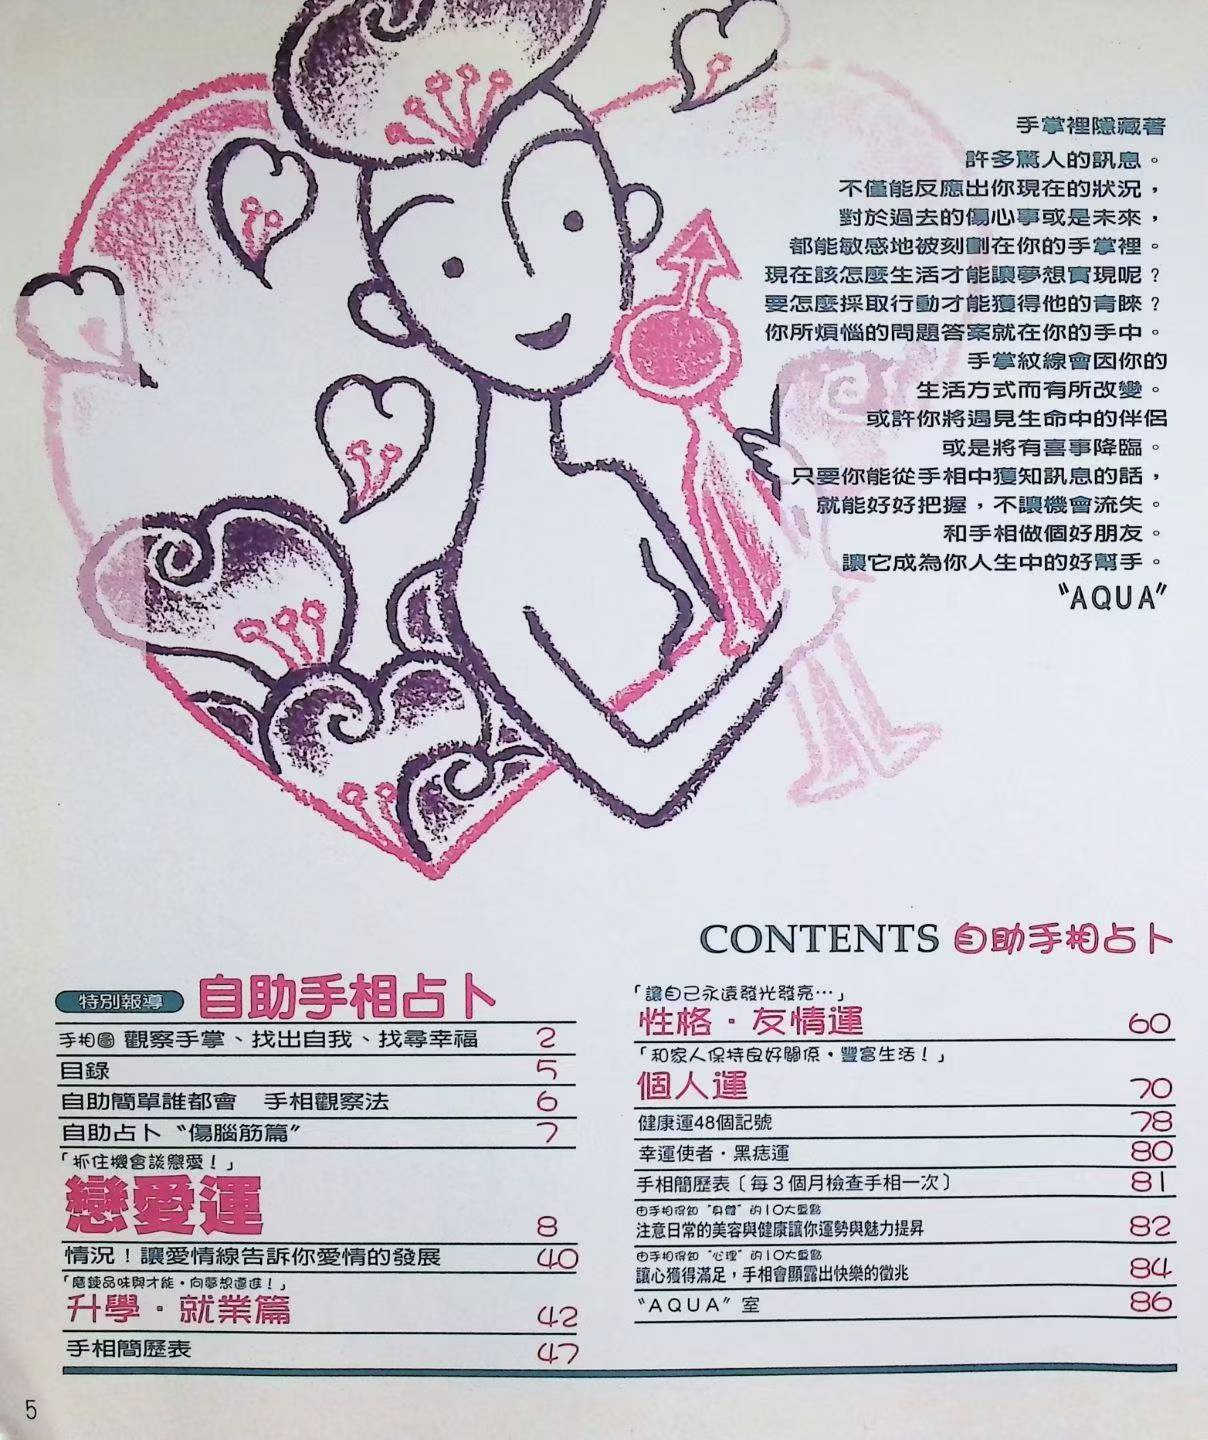 手掌裡隱藏著
許多驚人的訊息。
不僅能反應出你現在的狀況，
對於過去的傷心事或是未來，
都能敏感地被刻劃在你的手掌裡。
現在該怎麼生活才能讓夢想實現呢？
要怎麼採取行動才能獲得他的青睞？
你所煩惱的問題答案就在你的手中。
手掌紋線會因你的
生活方式而有所改變。
或許你將遇見生命中的伴侶
或是將有喜事降臨。
只要你能從手相中獲知訊息的話，
就能好好把握，不讓機會流失。
和手相做個好朋友。
讓它成為你人生中的好幫手。
〝AQUA〞
CONTENTS 自助手相占卜
特別報導 自助手相占卜
手相圖 觀察手掌、找出自我、找尋幸福 2
目錄 5
自助簡單誰都會　手相觀察法 6
自助占卜〝傷腦筋篇〞 7
「抓住機會談戀愛！」
戀愛運 8
情況！讓愛情線告訴你愛情的發展 40
「磨鍊品味與才能・向夢想邁進！」
升學・就業篇 42
手相簡歷表 47
「讓自己永遠發光發亮…」
性格・友情運 60
「和家人保持良好關係・豐富生活！」
個人運 70
健康運48個記號 78
幸運使者・黑痣運 80
手相簡歷表〔每3個月檢查手相一次〕 81
由手相得知〝身體〞的10大重點
注意日常的美容與健康讓你運勢與魅力提昇 82
由手相得知〝心理〞的10大重點
讓心獲得滿足，手相會顯露出快樂的徵兆 84
〝AQUA〞室 86
5